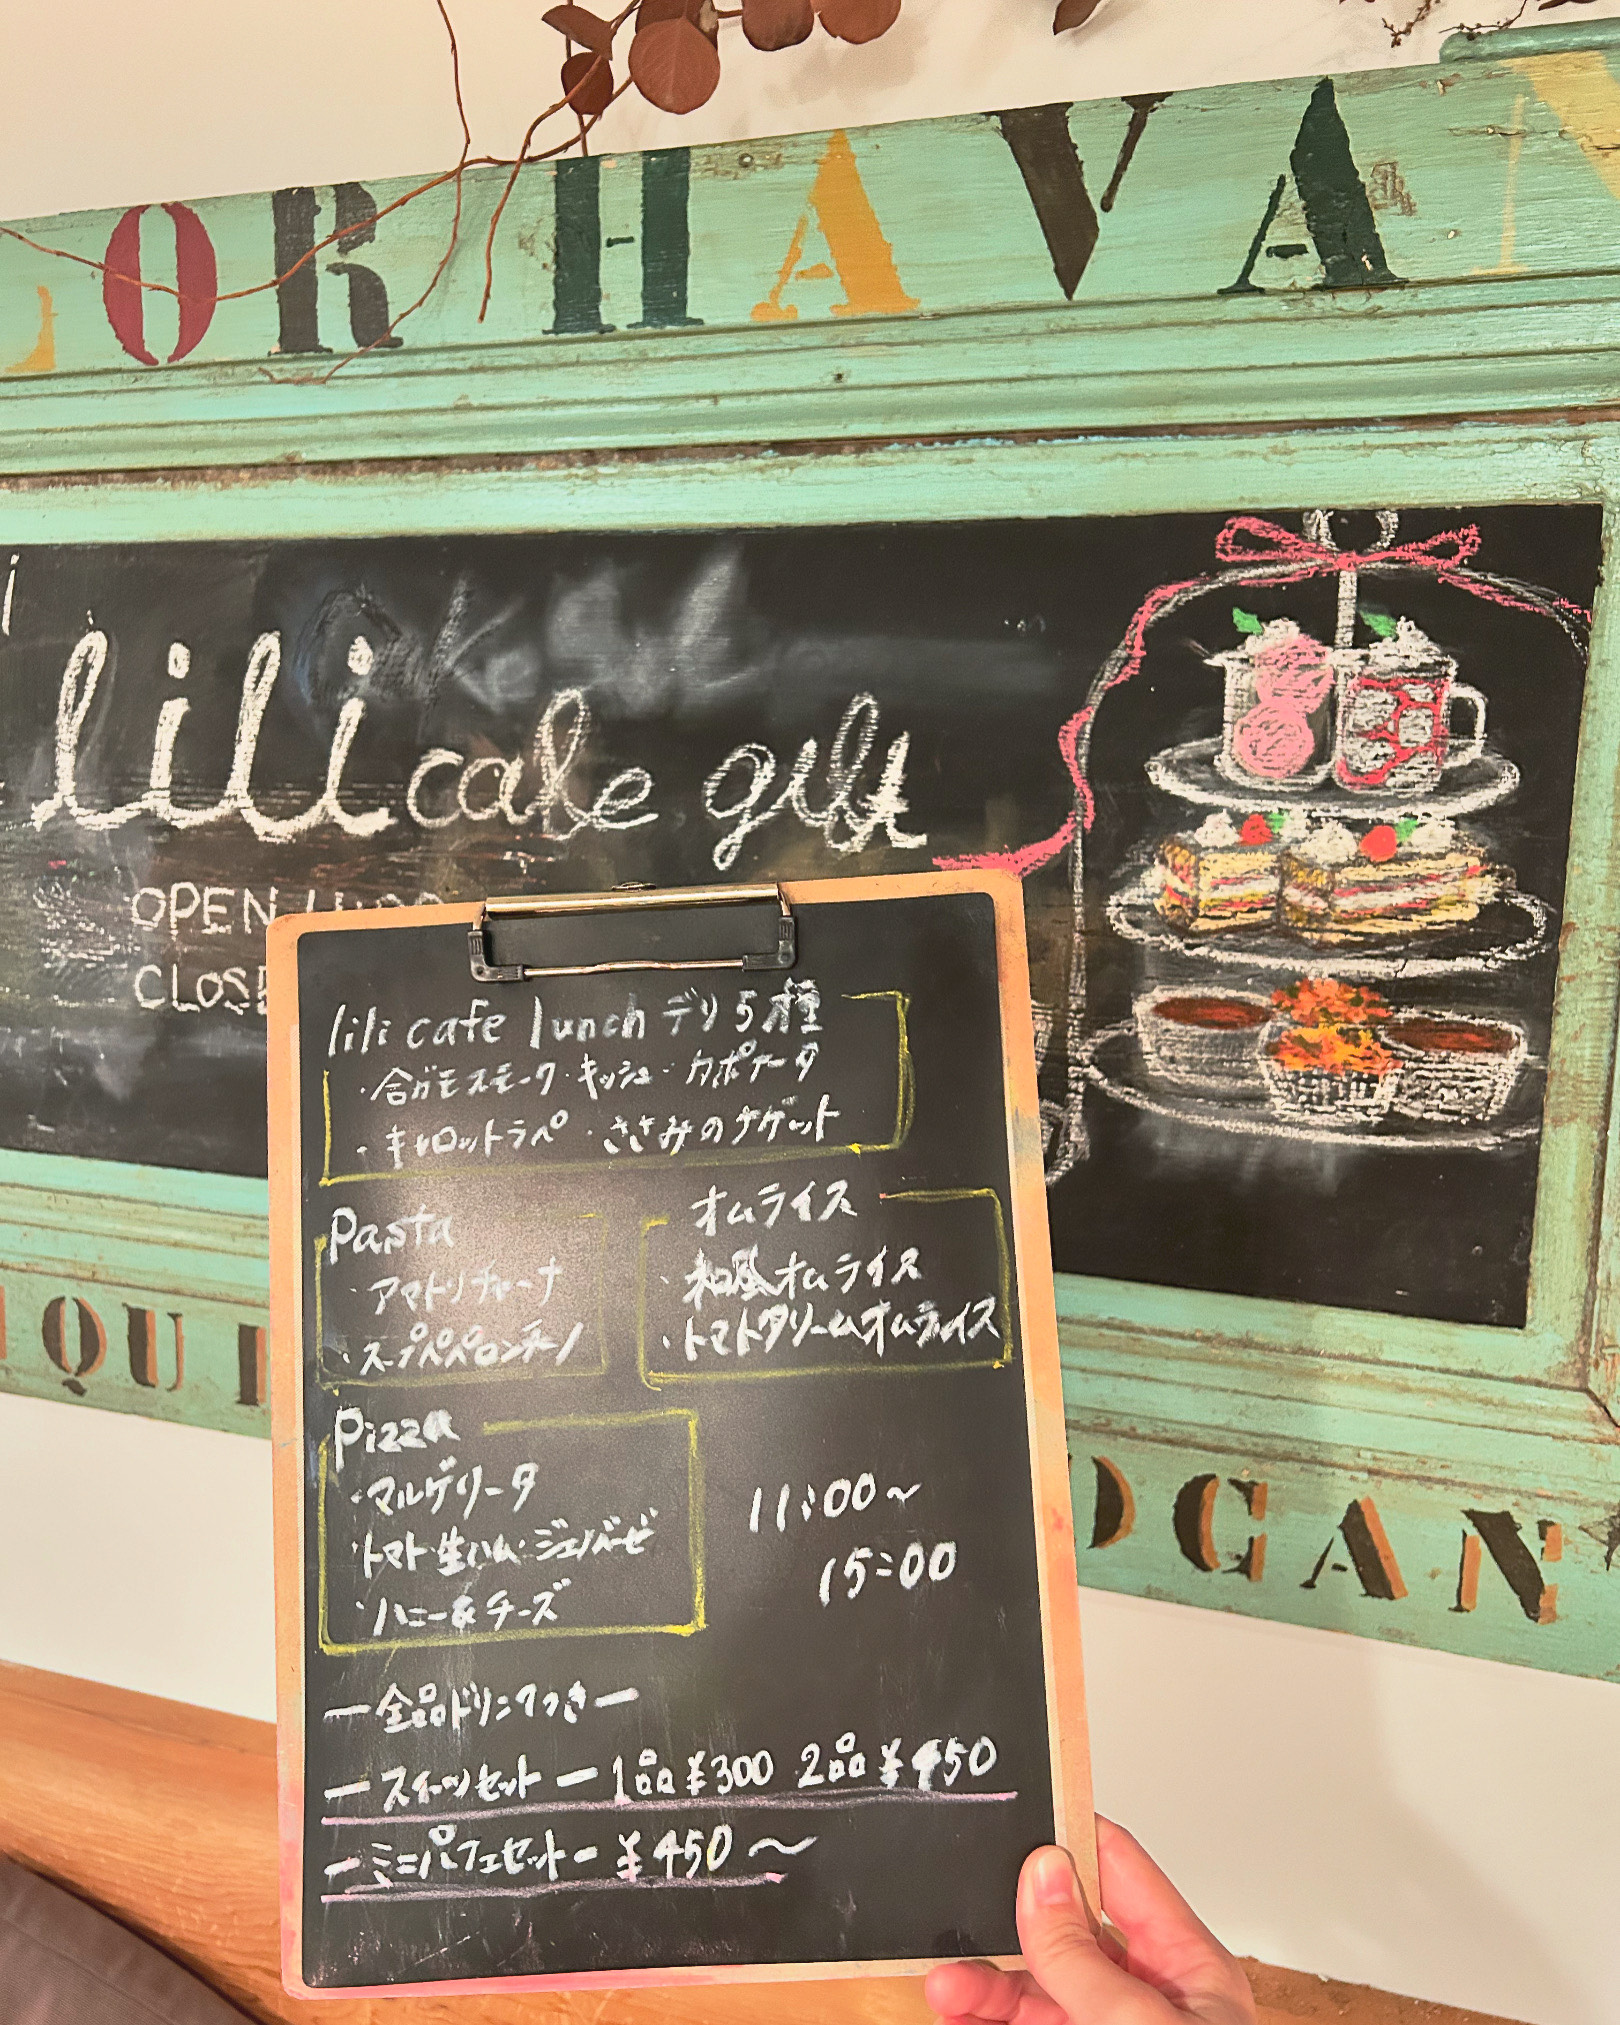 LOR HAVAN
lili cafe gift
OPEN
CLOSE
lili cafe lunch デリ5種
・合ガモステーク・キッシュ・カポナータ
・キャロットラペ・ささみのナゲット
Pasta
・アマトリチャーナ
・スープペペロンチーノ
オムライス
・和風オムライス
・トマトクリームオムライス
Pizza
・マルゲリータ
・トマト・生ハム・ジェノベーゼ
・ハニー&チーズ
11:00〜
15:00
ー全品ドリンクつきー
ースイーツセットー 1品¥300 2品¥450
ーミニパフェセットー ¥450〜
QUI
OGAN